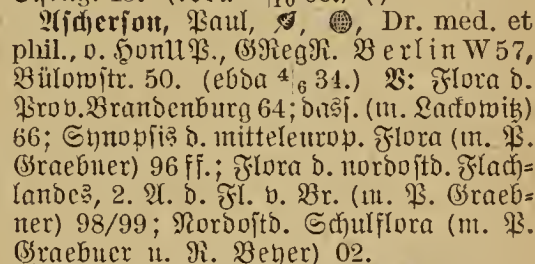 Ascherson, Paul, Dr. med. et
phil., o. HonUP., GRegR. Berlin W 57,
Bülowstr. 50. (ebda 4/6 34.) V: Flora d.
Prov. Brandenburg 64; dass. (m. Lackowitz)
66; Synopsis d. mitteleurop. Flora (m. P.
Graebner) 96 ff.; Flora d. nordostd. Flach-
landes, 2. A. d. Fl. v. Br. (m. P. Graeb-
ner) 98/99; Nordostd. Schulflora (m. P.
Graebner u. R. Beyer) 02.